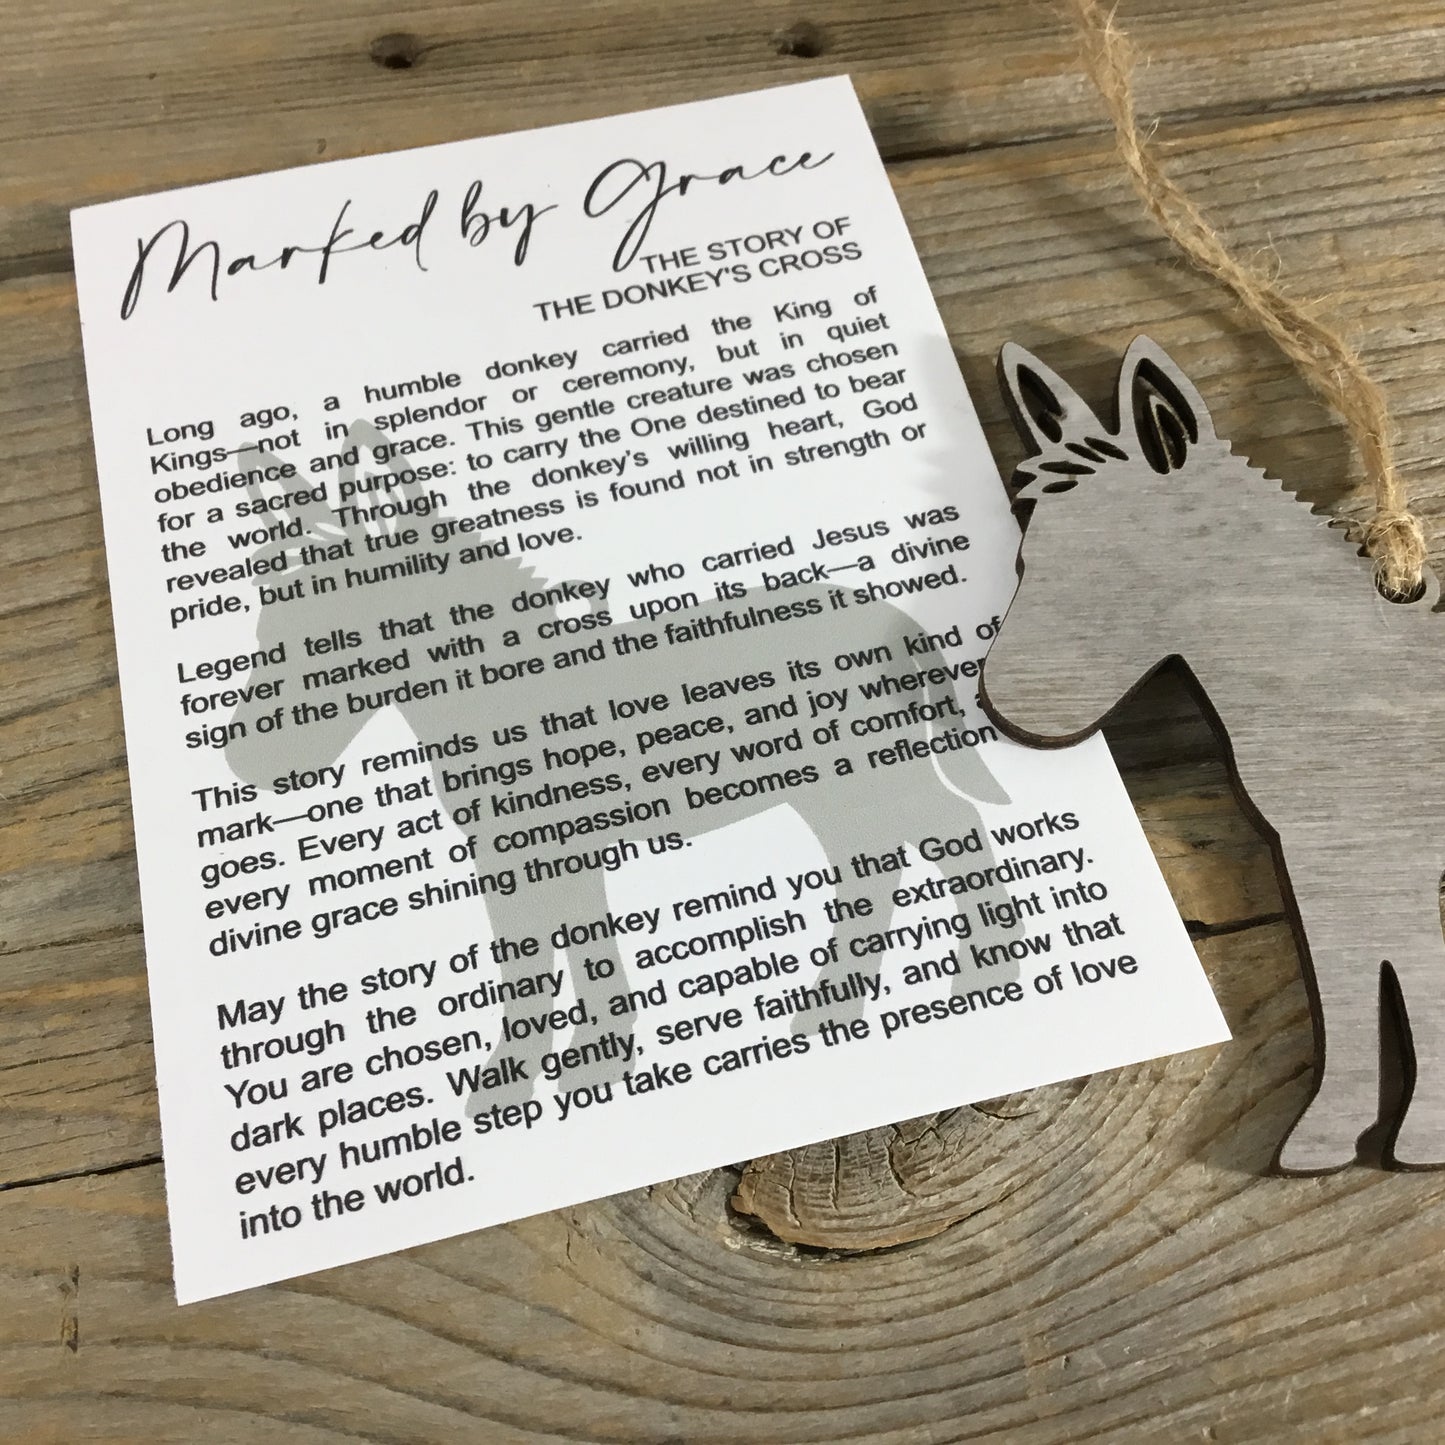 Marked by Grace
THE STORY OF
THE DONKEY'S CROSS
Long ago, a humble donkey carried the King of
Kings—not in splendor or ceremony, but in quiet
obedience and grace. This gentle creature was chosen
for a sacred purpose: to carry the One destined to bear
the world. Through the donkey's willing heart, God
revealed that true greatness is found not in strength or
pride, but in humility and love.
Legend tells that the donkey who carried Jesus was
forever marked with a cross upon its back—a divine
sign of the burden it bore and the faithfulness it showed.
This story reminds us that love leaves its own kind of
mark—one that brings hope, peace, and joy wherever
goes. Every act of kindness, every word of comfort,
every moment of compassion becomes a reflection
divine grace shining through us.
May the story of the donkey remind you that God works
through the ordinary to accomplish the extraordinary.
You are chosen, loved, and capable of carrying light into
dark places. Walk gently, serve faithfully, and know that
every humble step you take carries the presence of love
into the world.